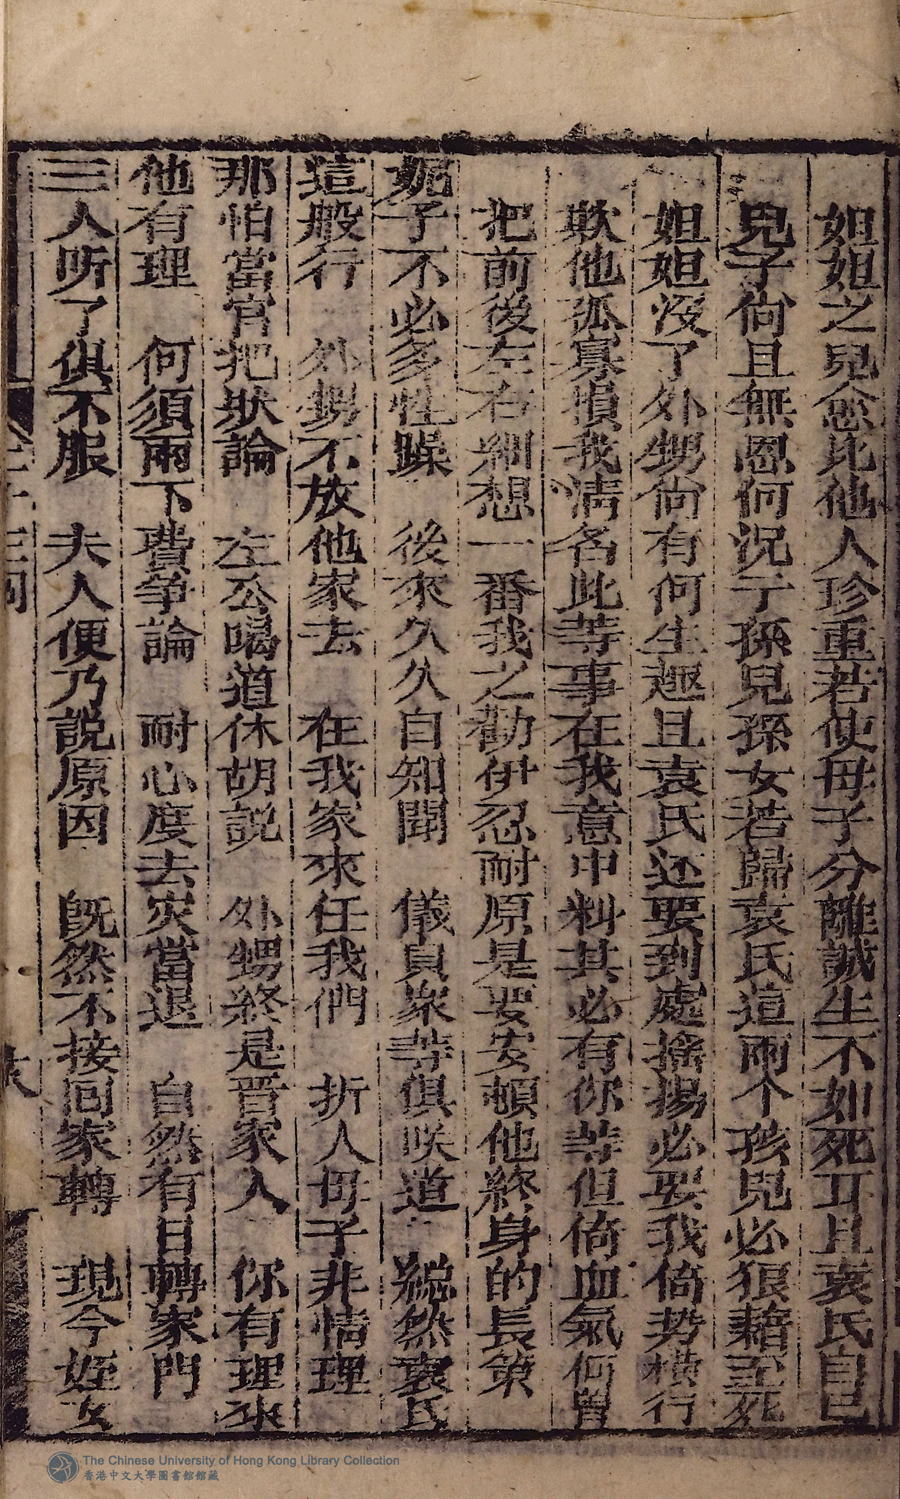 姐姐之兒愈比他人珍重若使母子分離誠生不如死耳且袁氏自已
兒子尙且無恩何况于孫兒孫女若歸袁氏這兩个孩兒必狼藉至死
姐姐没了外甥尙有何生趣且袁氏还要到處搖揚必要我倚势橫行
欺他孤寡損我清名此等事在我意中料其必有你等但倚血氣何曾
把前後左右細想一番我之勸伊忍耐原是要安頓他終身的長策
妮子不必多性躁　後來久久自知聞　儀員衆等俱咲道　縱然袁氏
這般行　外甥不放他家去　在我家來任我們　折人母子非情理
那怕當官把狀論　左公喝道休胡説　外甥終是晋家人　你有理來
他有理　何須兩下費爭論　耐心度去灾當退　自然有日轉家門
三人听了俱不服　夫人便乃説原因　旣然不接囘家轉　現今姪女
The Chinese University of Hong Kong Library Collection
香港中文大學圖書館館藏